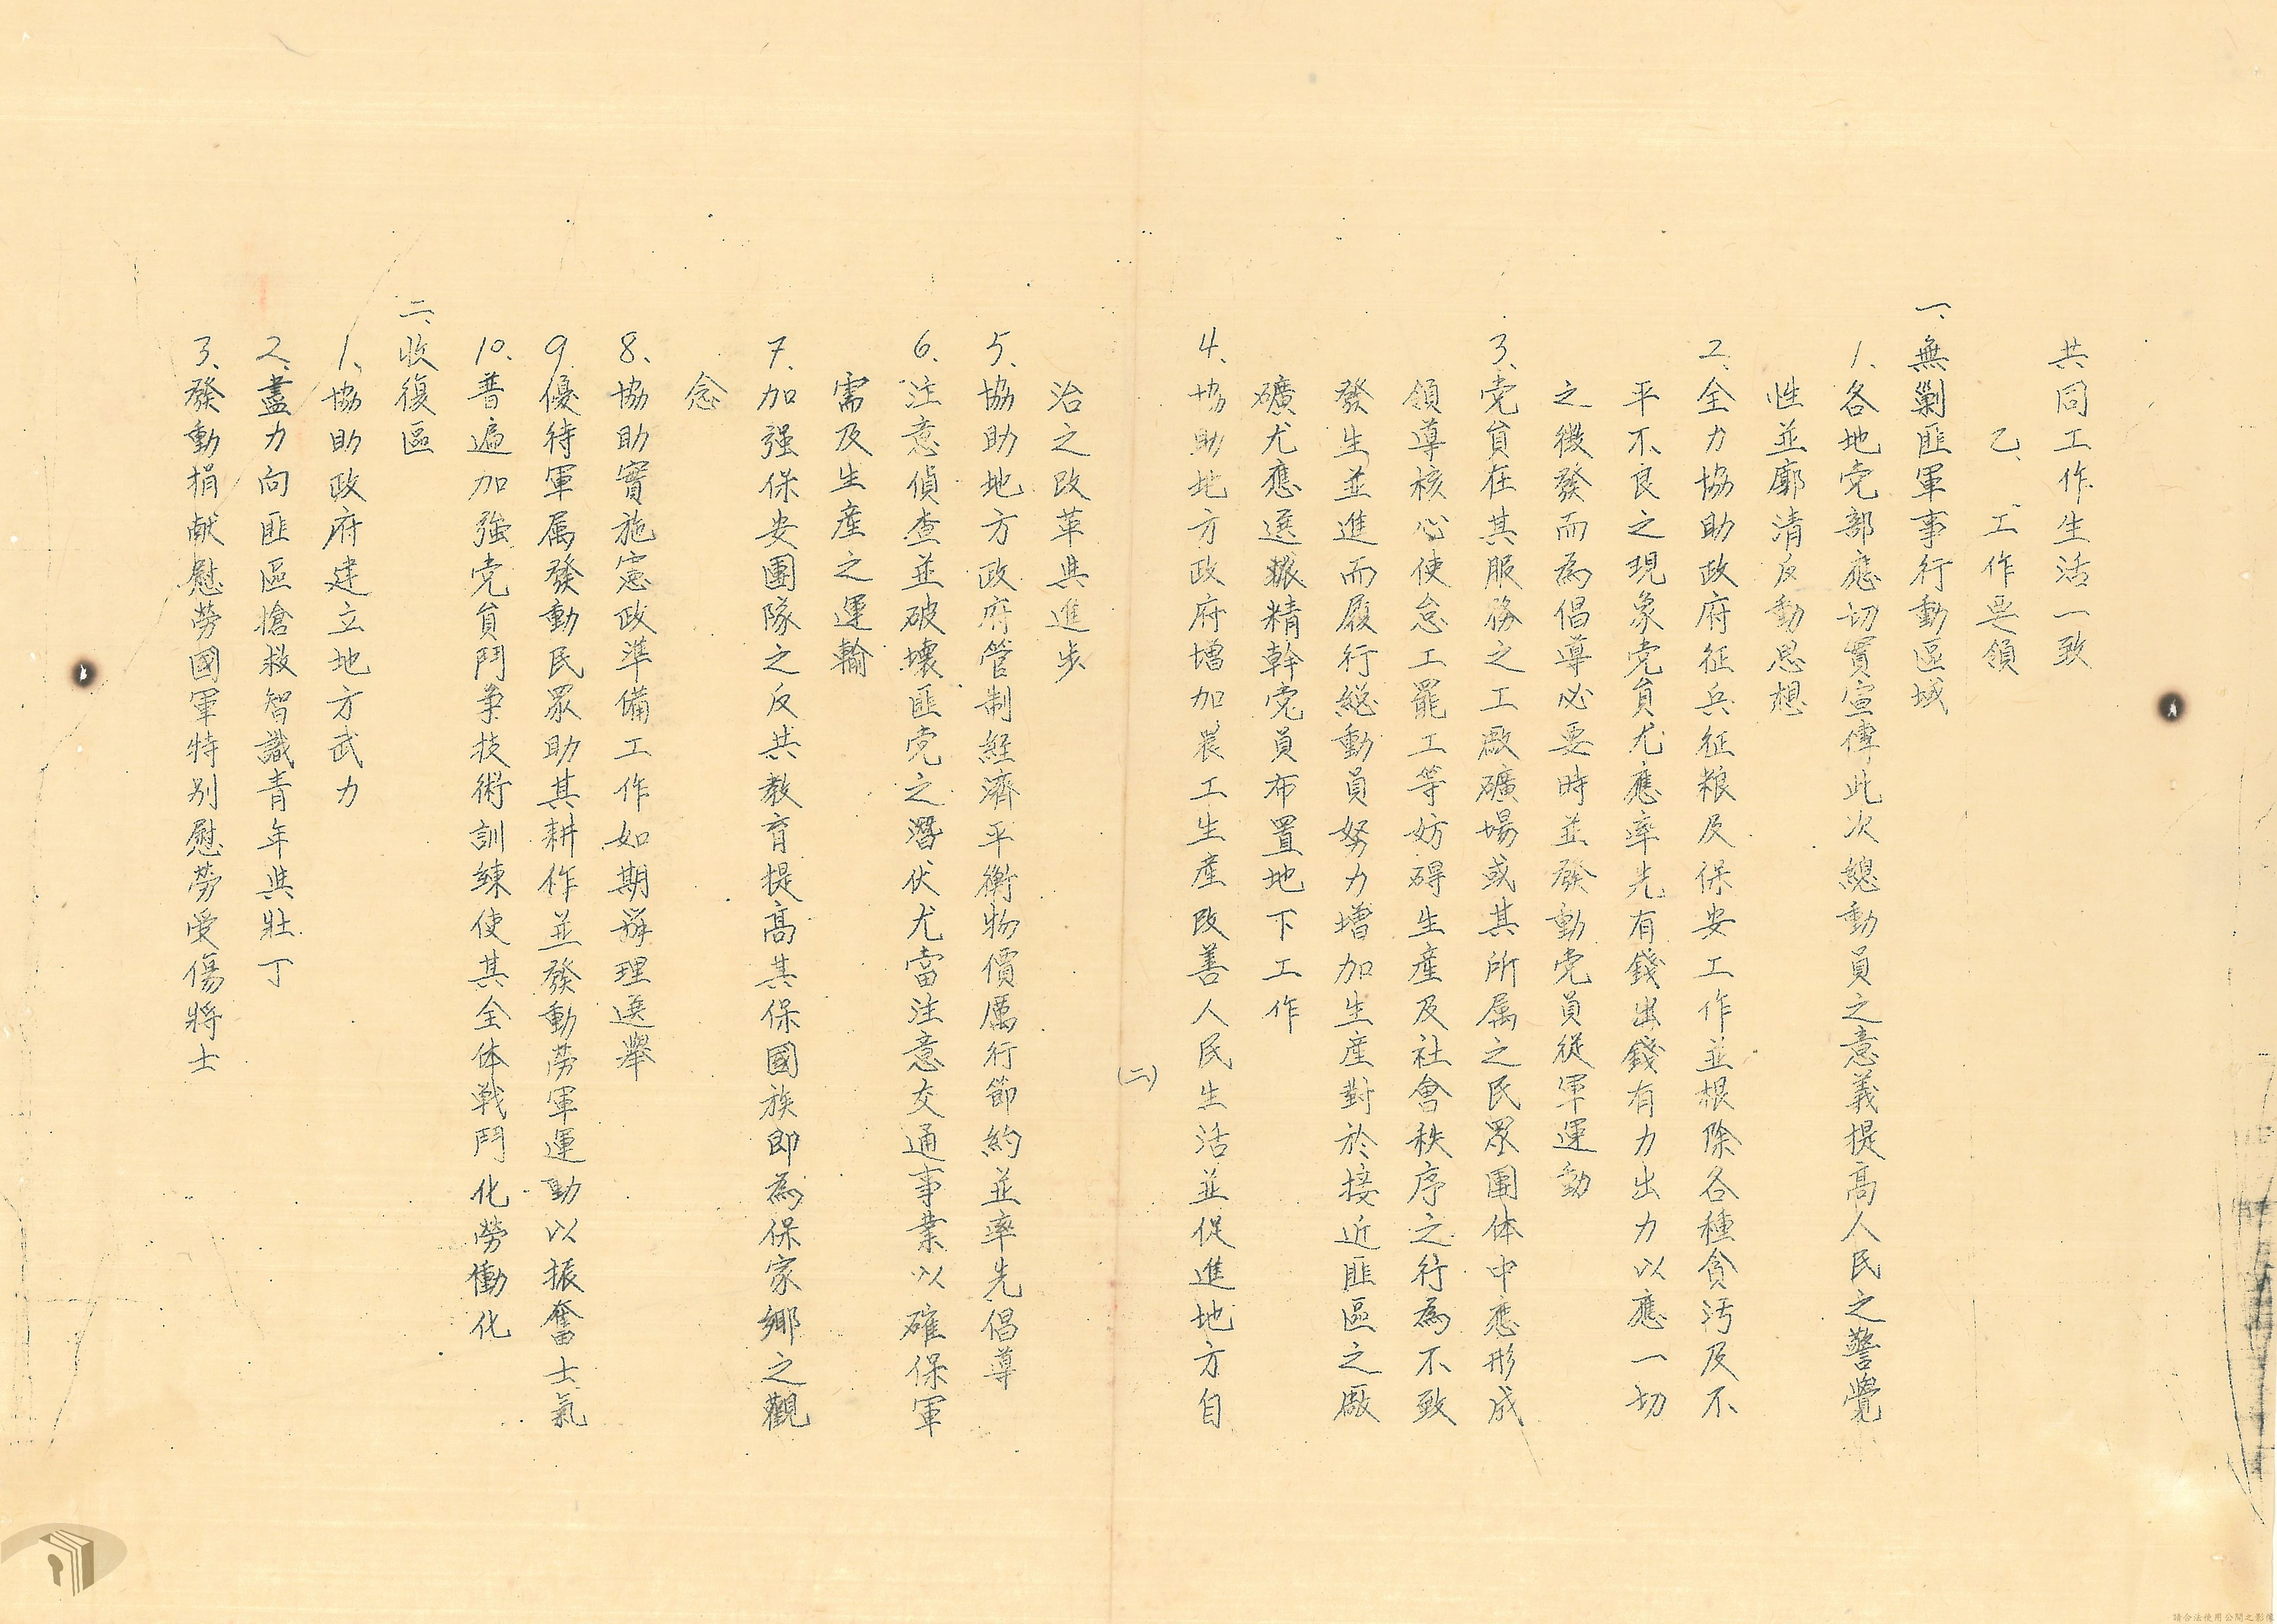 共同工作生活一致
乙、工作要領
一、無剿匪軍事行動區域
1、各地党部應切實宣傳此次總動員之意義提高人民之警覺
性並廓清反動思想
2、全力協助政府征兵征粮及保安工作並根除各種貪污及不
平不良之現象党員尤應率先有錢出錢有力出力以應一切
之徵發而為倡導必要時並發動党員從軍運動
3、党員在其服務之工厰礦場或其所属之民眾團体中應形成
領導核心使怠工罷工等妨碍生產及社會秩序之行為不致
發生並進而履行総動員努力增加生產對於接近匪區之厰
礦尤應選擇精幹党員布置地下工作
4、協助地方政府增加農工生產改善人民生活並促進地方自
(二)
治之改革與進步
5、協助地方政府管制経濟平衡物價厲行節約並率先倡導
6、注意偵查並破壞匪党之潛伏尤當注意交通事業以確保軍
需及生產之運輸
7、加强保安團隊之反共教育提高其保國族即為保家鄉之觀
念
8、協助實施憲政準備工作如期辦理選舉
9、優待軍属發動民眾助其耕作並發動勞軍運動以振奮士氣
10、普遍加強党員鬥爭技術訓練使其全体戦鬥化勞働化
二、收復區
1、協助政府建立地方武力
2、盡力向匪區搶救智識青年與壯丁
3、發動捐献慰勞國軍特别慰勞受傷將士
請合法使用公開之影像